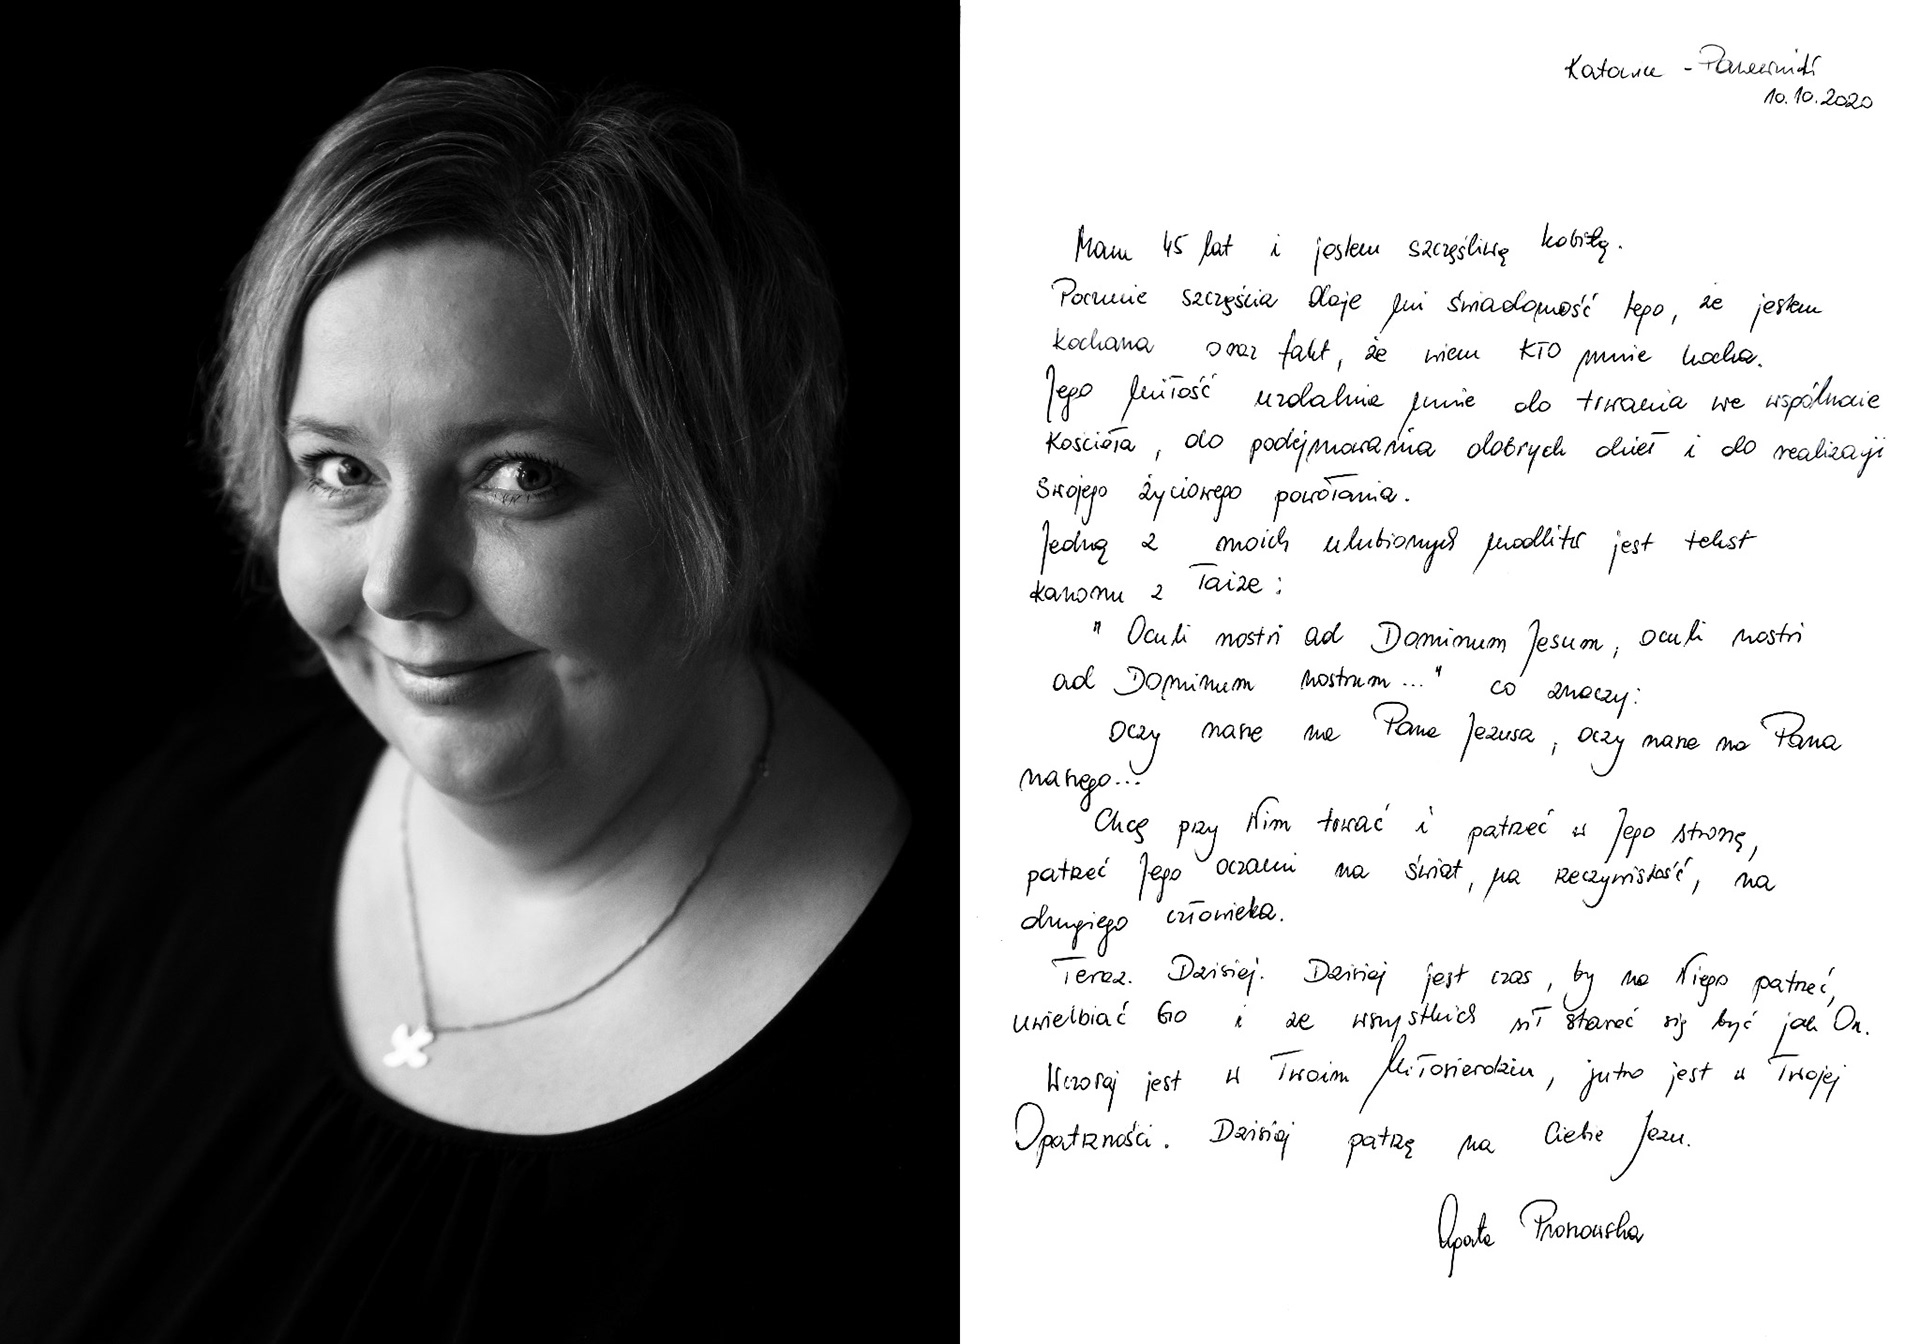 Katowice - Panewniki
10.10.2020
Mam 45 lat i jestem szczęśliwą kobietą.
Poczucie szczęścia daje mi świadomość tego, że jestem
kochana oraz fakt, że wiem KTO mnie kocha.
Jego miłość uzdalnia mnie do trwania we wspólnocie
Kościoła, do podejmowania dobrych dzieł i do realizacji
swojego życiowego powołania.
Jedną z moich ulubionych modlitw jest tekst
kanonu z Taize:
" Oculi nostri ad Dominum Jesum, oculi nostri
ad Dominum nostrum..." co znaczy:
oczy nasze na Pana Jezusa, oczy nasze na Pana
naszego...
Chcę przy Nim trwać i patrzeć w Jego stronę,
patrzeć Jego oczami na świat, na rzeczywistość, na
drugiego człowieka.
Teraz. Dzisiaj. Dzisiaj jest czas, by na Niego patrzeć,
uwielbiać Go i ze wszystkich sił starać się być jak On.
Wczoraj jest w Twoim Miłosierdziu, jutro jest w Twojej
Opatrzności. Dzisiaj patrzę na Ciebie Jezu.
Agata Pronowska